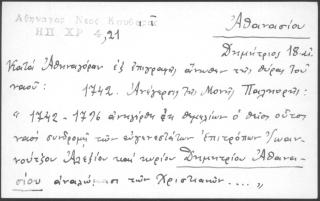 Ἀθηναγος Νεος Κουβαρᾶ
ΗΠ ΧΡ 4,21
Ἀθανασίου
Δημήτριος 18 αἰ.
Κατά Ἀθηναγόραν ἐξ ἐπιγραφῆς ἄνωθεν τῆς θύρας τοῦ
ναοῦ: 1742. Ἀνέγερσις τῆς Μονῆς
"1742 - 1796 ἀνηγέρθη ἐκ θεμελίων ὁ θεῖος οὗτος
ναός συνδρομῇ τῶν εὐγενεστάτων ἐπιτρόπων Ἰωαν-
νούτζου Ἀλεξίου καί κυρίου Δημητρίου Ἀθανα-
σίου ἀναλώμασι τῶν Χριστιανῶν ...."